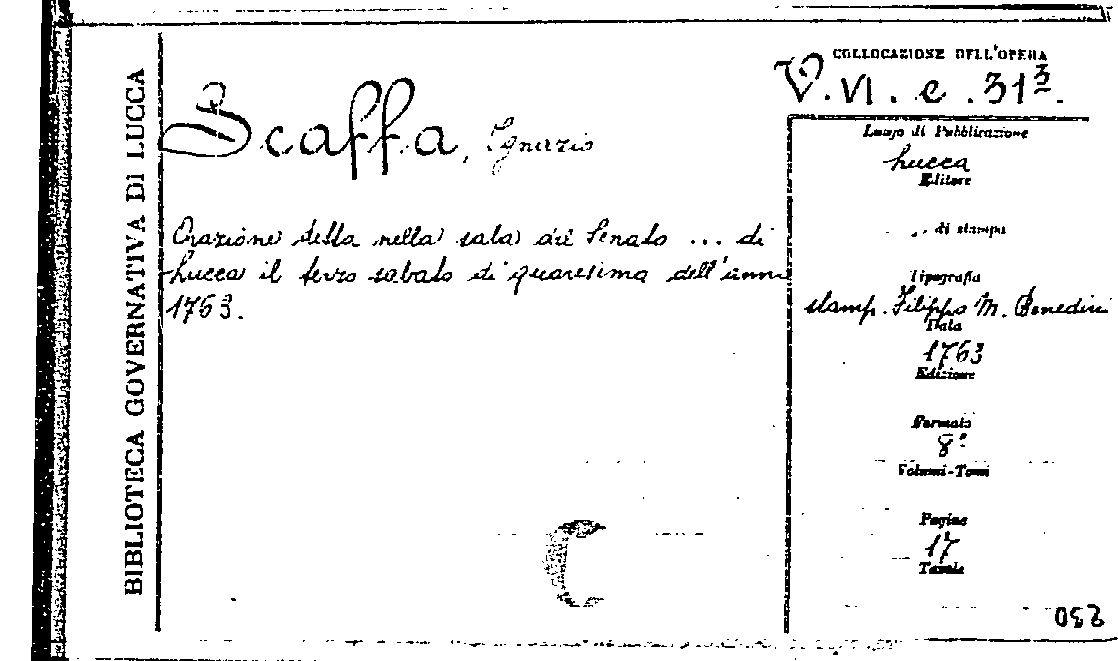 BIBLIOTECA GOVERNATIVA DI LUCCA
Scaffa, Ignazio
Orazione detta nella sala del Senato ... di
Lucca il terzo sabato di quaresima dell'anno
1763.
COLLOCAZIONE DELL'OPERA
V. VI. e. 31³.
Luogo di Pubblicazione
Lucca
Editore
di stampa
Tipografia
stamp. Filippo M. Benedini
Data
1763
Edizione
Formato
8°
Volumi-Tomi
Pagine
17
Tavole
C
052